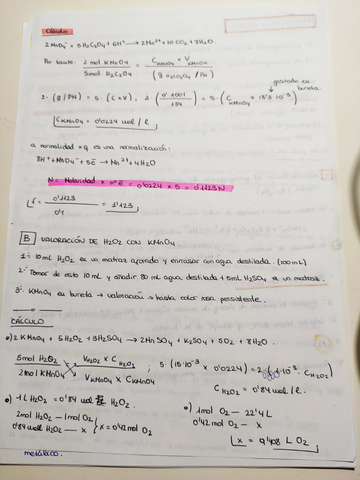 Cálculo
2 MnO4⁻ + 5 H2C2O4 + 6H⁺ → 2Mn²⁺ + 10 CO2 + 8H2O.
Por tanto: 2 mol KMnO4 / 5mol H2C2O4 = CKMnO4 × VKMnO4 / (g H2C2O4 / PM)
gastado en bureta
2 · (g / PM) = 5 · (C × V), 2 · (0'1001 / 134) = 5 · (CKMnO4 × 13'3·10⁻³)
CKMnO4 = 0'0224 mol / l
a normalidad x q es una normalización:
8H⁺ + MnO4⁻ + 5e⁻ → Mn²⁺ + 4H2O
N = Molaridad × nº e⁻ = 0'0224 × 5 = 0'1123 N
f = 0'1123 / 0'1 = 1'123
B VALORACIÓN DE H2O2 CON KMnO4
1º 10 mL H2O2 en un matraz aforado y enrasar con agua destilada. (100 mL)
2º Tomar de esto 10 mL y añadir 80 mL agua destilada + 5mL H2SO4 en un matraz.
3º KMnO4 en bureta → valoración → hasta color rosa persistente.
CÁLCULO
2 KMnO4 + 5 H2O2 + 3H2SO4 → 2MnSO4 + K2SO4 + 5O2 + 8H2O.
5mol H2O2 / 2mol KMnO4 VH2O2 × CH2O2 / VKMnO4 × CKMnO4 ; 5 · (15·10⁻³ × 0'0224) = 2 (1·10⁻³ · CH2O2)
CH2O2 = 0'84 mol / l.
1L H2O2 = 0'84 mol H2O2.
2mol H2O2 — 1mol O2
0'84 mol H2O2 — x } x = 0'42 mol O2
1mol O2 — 22'4 L
0'42 mol O2 — x
x = 9'408 L O2
metálico.